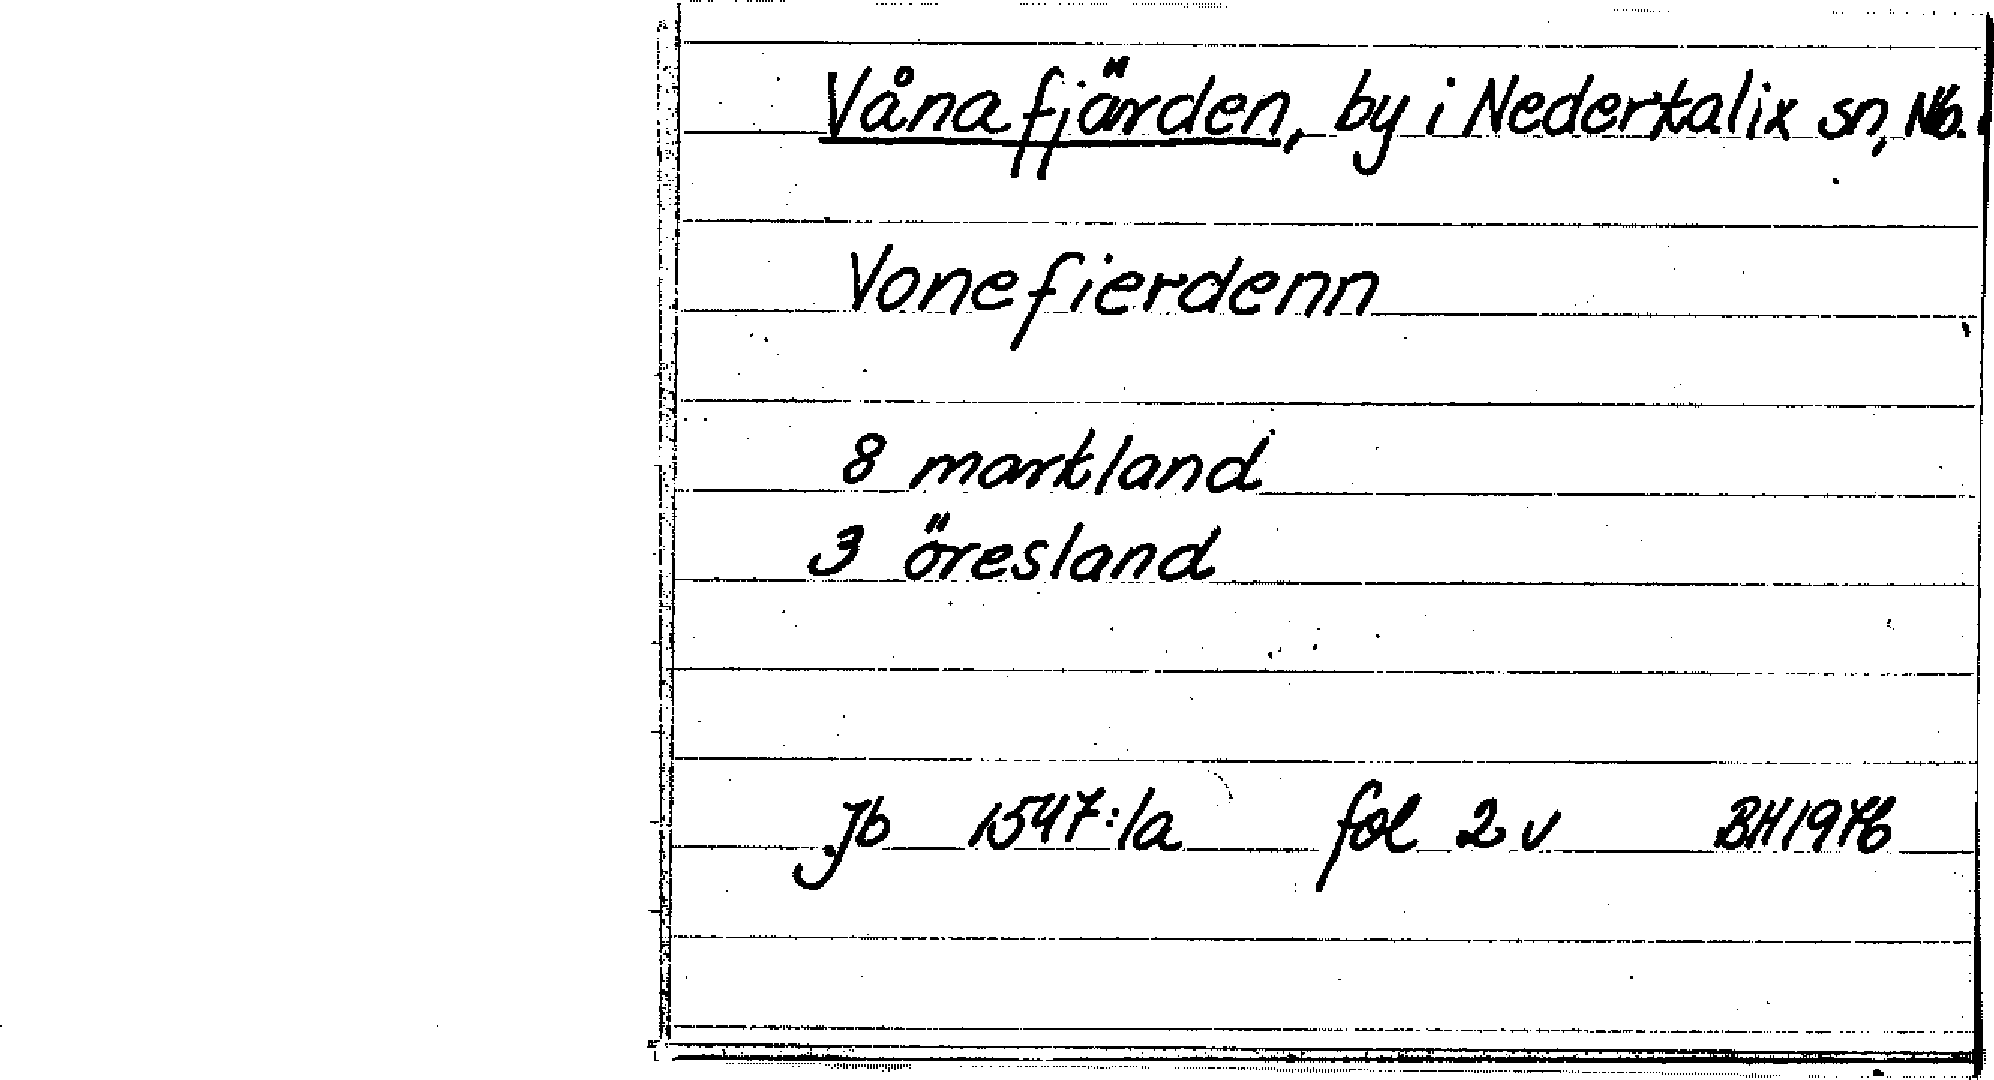 Vånafjärden, by i Nederkalix sn, Nb.
Vonefierdenn
8 markland
3 öresland
Jb 1547:1a fol 2 v BH 1976